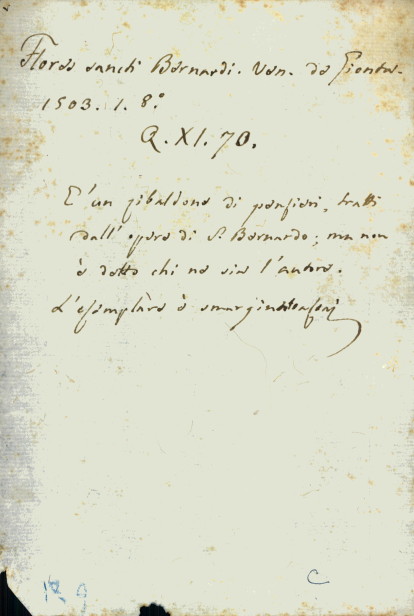 Flores sancti Bernardi. Ven. de Gionta.
1503. 1. 8.º
Q. XI. 70.
E' un zibaldone di pensieri, tratti
dall' opere di S. Bernardo; ma non
è detto chi ne sia l'autore.
L'esemplare è
C